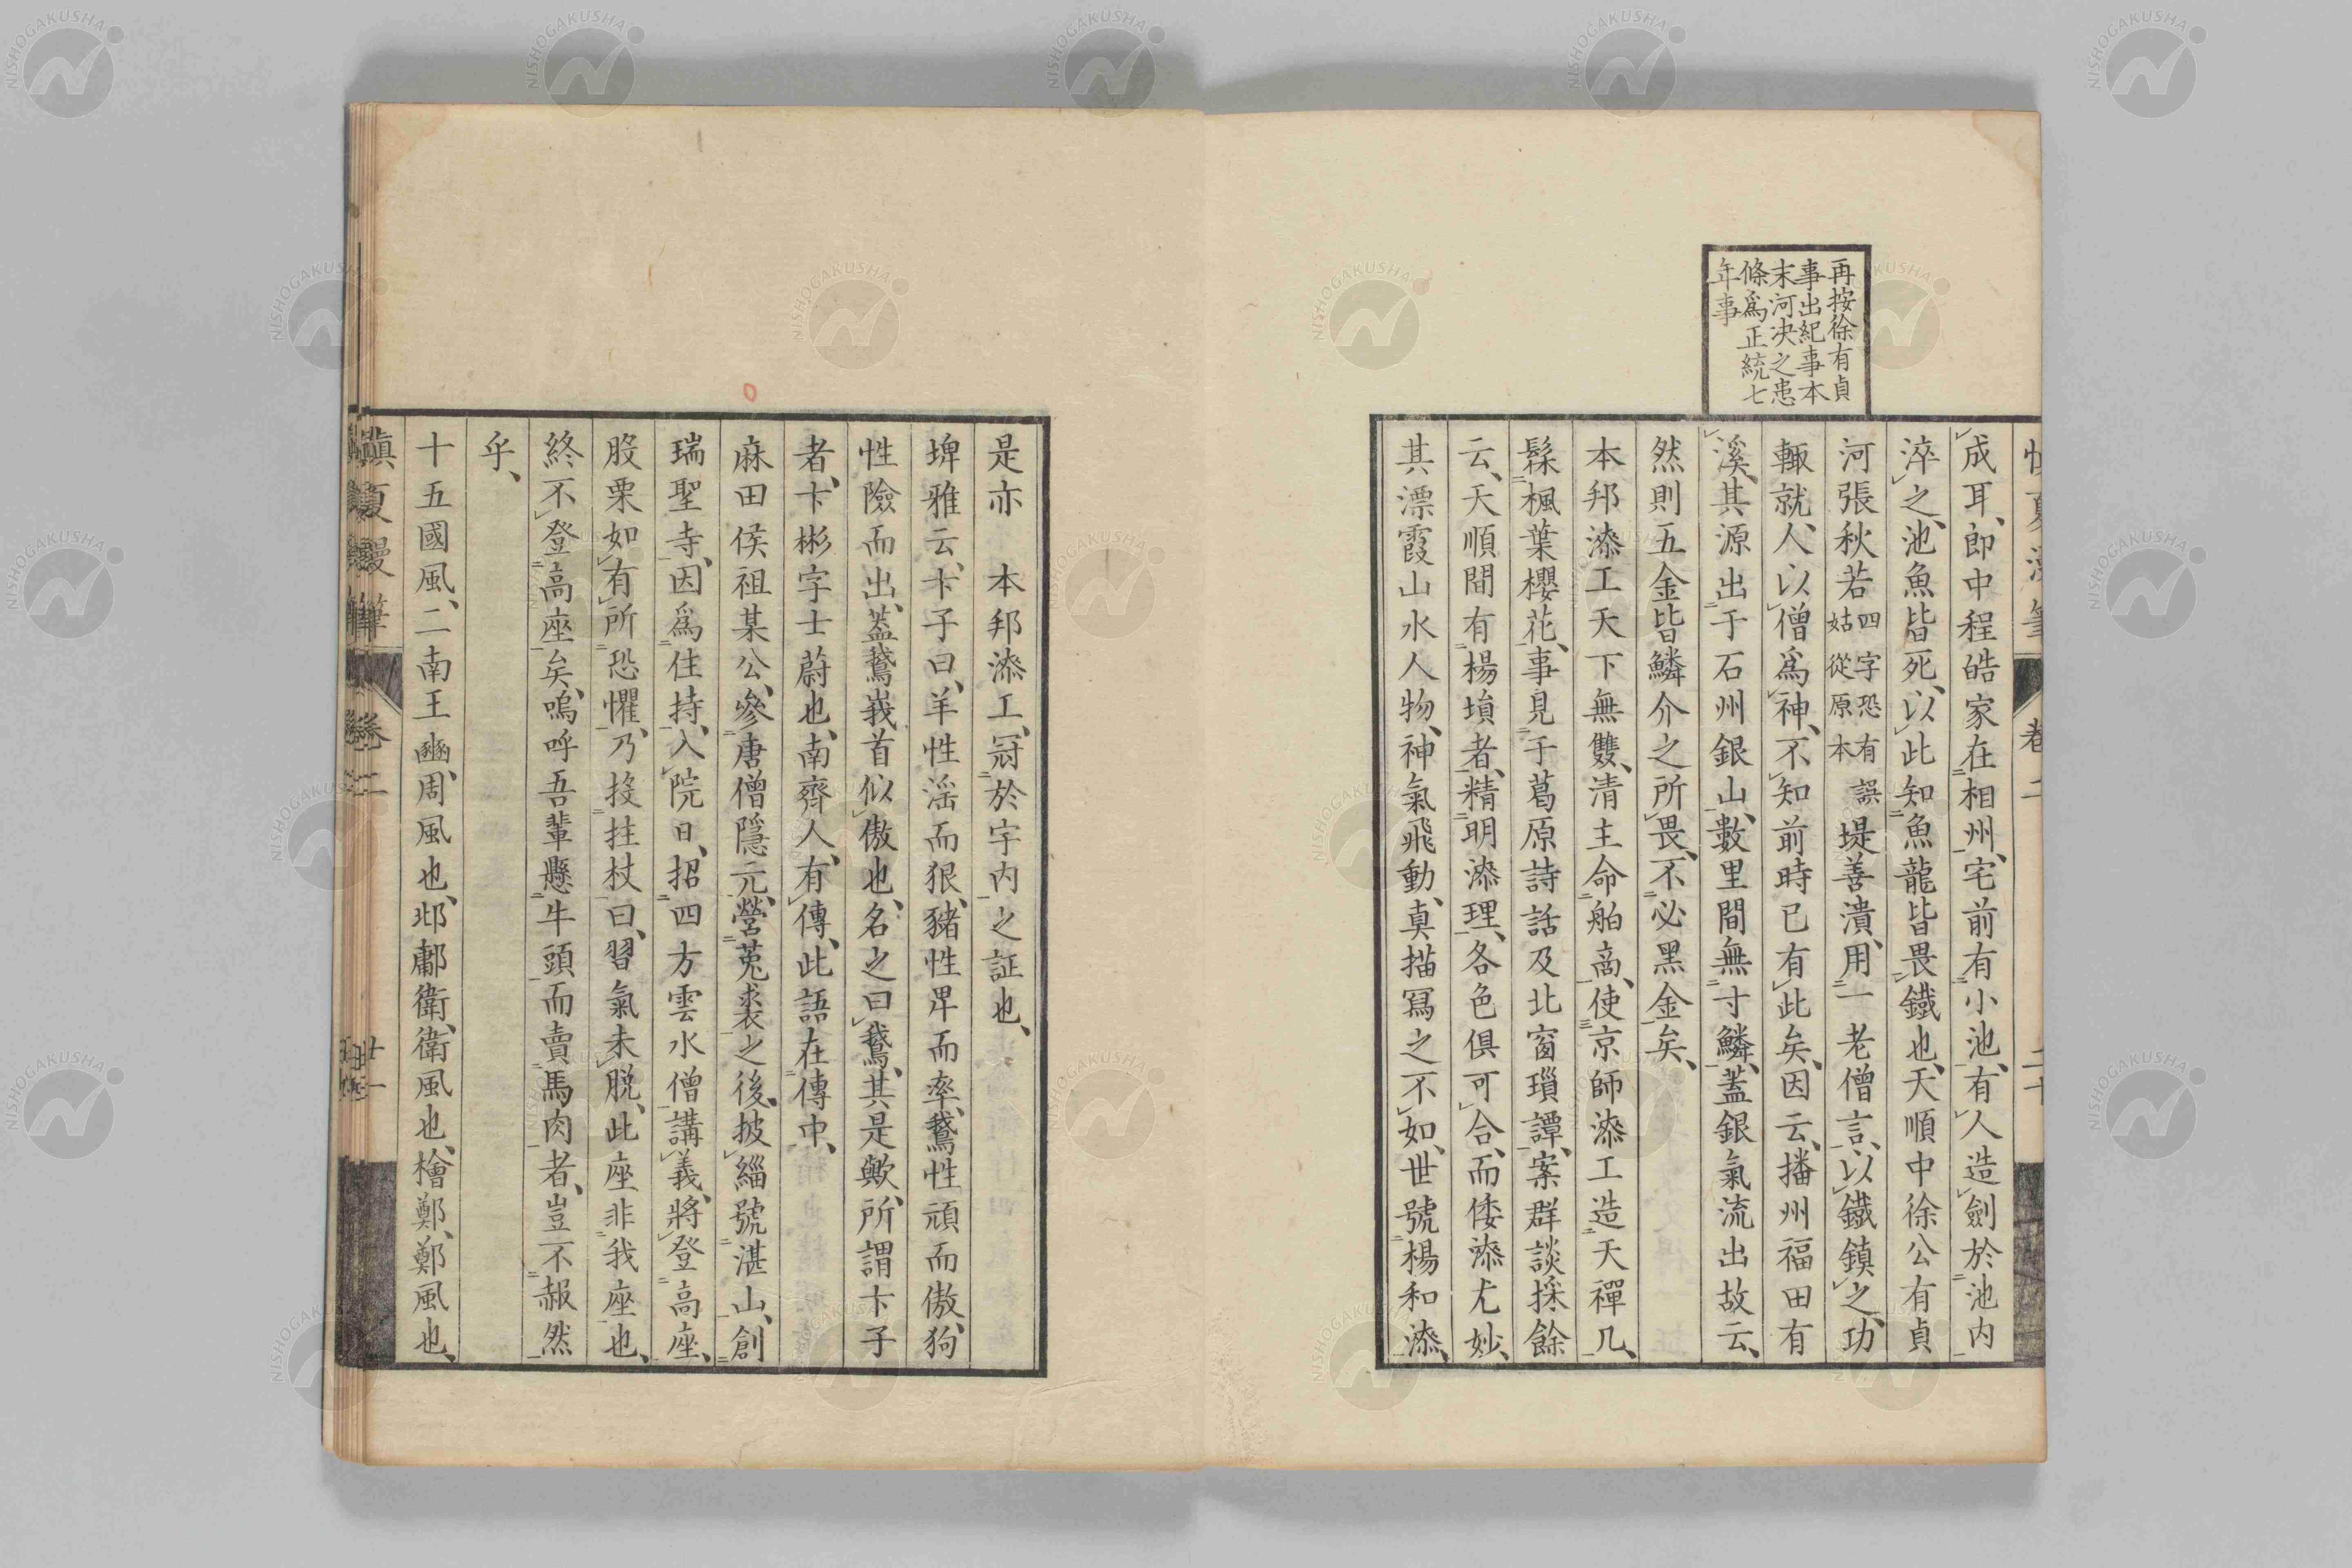 再按徐有貞
事出紀事本
末河决之患
條爲正統七
年事
成耳、即中程皓家在相州、宅前有小池、有人造劍於池内
淬之、池魚皆死、以此知魚龍皆畏鐵也、天順中徐公有貞
河張秋若四字恐有誤姑從原本堤善潰、用一老僧言、以鐵鎮之、功
輙就、人以僧爲神、不知前時已有此矣、因云、播州福田有
溪、其源出于石州銀山、數里間無寸鱗、蓋銀氣流出故云、
然則五金皆鱗介之所畏、不必黑金矣、
本邦漆工天下無雙、清主命舶啇、使京師漆工造天禪几、
髹楓葉櫻花、事見于葛原詩話及北窗瑣譚、案群談採餘
云、天順間有楊塤者、精明漆理、各色俱可合、而倭漆尤妙、
其漂霞山水人物、神氣飛動、真描冩之不如、世號楊和漆、
是亦　本邦漆工、冠於宇内之証也、
埤雅云、卞子曰、羊性淫而狠、豬性卑而率、鵞性頑而傲、狗
性險而出、蓋鵞峩首似傲也、名之曰鵞、其是歟、所謂卞子
者、卞彬字士蔚也、南齊人、有傳、此語在傳中、
麻田侯祖某公、參唐僧隱元、營菟裘之後、披緇號湛山、創
瑞聖寺、因爲住持、入院日、招四方雲水僧講義、將登高座、
股栗如有所恐懼、乃投拄杖曰、習氣未脱、此座非我座也、
終不登高座矣、嗚呼吾輩懸牛頭而賣馬肉者、豈不赧然
乎、
十五國風、二南王豳、周風也、邶鄘衛、衛風也、檜鄭、鄭風也、
卷二